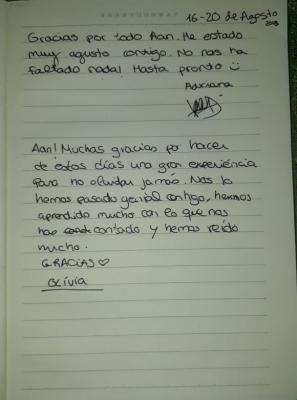 16-20 de Agosto
Gracias por todo Aan. He estado
muy agusto contigo. No nos ha
faltado nada! Hasta pronto
Adriana
Aan! Muchas gracias por hacer
de estos días una gran experiencia
para no olvidar jamás. Nos lo
hemos pasado genial contigo, hemos
aprendido mucho con lo que nos
has contado y hemos reído
mucho.
GRACIAS♡
Olivia